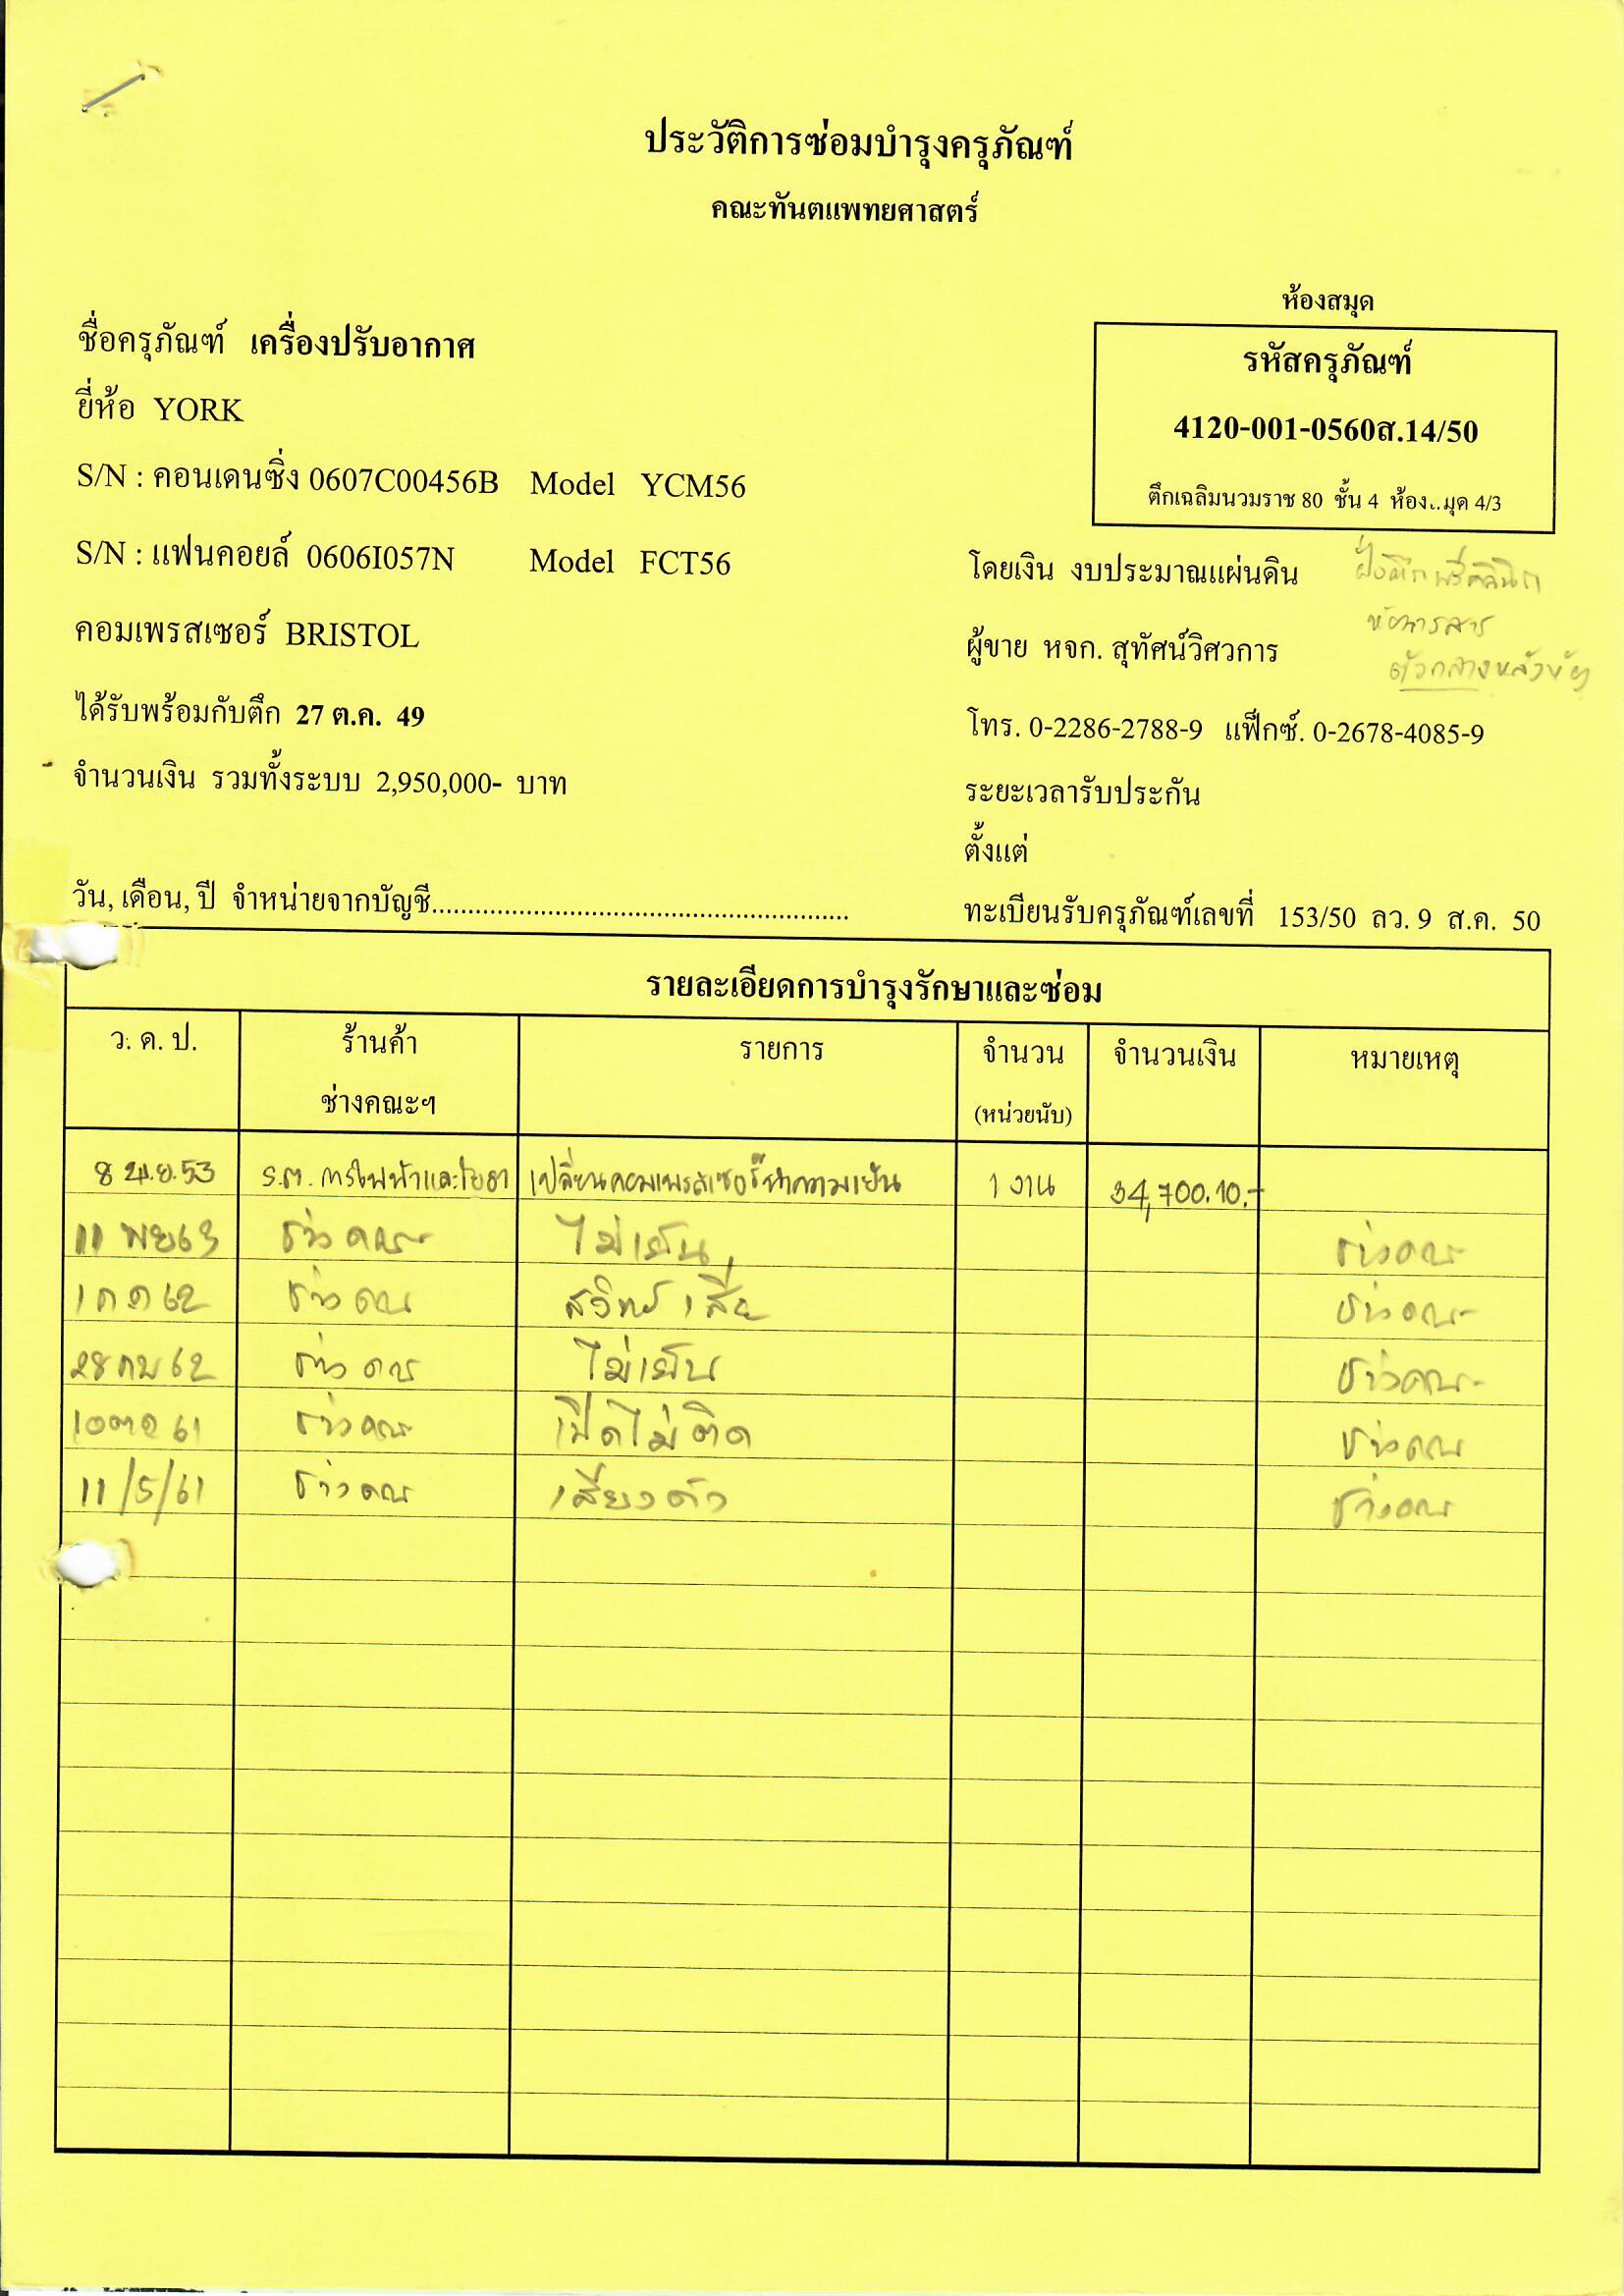 ประวัติการซ่อมบำรุงครุภัณฑ์
คณะทันตแพทยศาสตร์
ห้องสมุด
ชื่อครุภัณฑ์ เครื่องปรับอากาศ
รหัสครุภัณฑ์
ยี่ห้อ YORK
4120-001-0560ส.14/50
S/N : คอนเดนซิ่ง 0607C00456B Model YCM56
ตึกเฉลิมนวมราช 80 ชั้น 4 ห้อง..มุด 4/3
S/N : แฟนคอยล์ 0606I057N Model FCT56
โดยเงิน งบประมาณแผ่นดิน ฝั่งตึกพรีคลินิก
คอมเพรสเซอร์ BRISTOL
ผู้ขาย หจก. สุทัศน์วิศวการ
ตัวกลางหลังห้อง
ได้รับพร้อมกับตึก 27 ต.ค. 49
โทร. 0-2286-2788-9 แฟ็กซ์. 0-2678-4085-9
จำนวนเงิน รวมทั้งระบบ 2,950,000- บาท
ระยะเวลารับประกัน
ตั้งแต่
วัน, เดือน, ปี จำหน่ายจากบัญชี..........................................................
ทะเบียนรับครุภัณฑ์เลขที่ 153/50 ลว. 9 ส.ค. 50
รายละเอียดการบำรุงรักษาและซ่อม
ว. ด. ป. ร้านค้า รายการ จำนวน จำนวนเงิน หมายเหตุ
ช่างคณะฯ (หน่วยนับ)
8 เม.ย. 53 ร.ต. การไฟฟ้าและโยธา เปลี่ยนคอมเพรสเซอร์ทำความเย็น 1 งาน 34,700.10.-
11 พย 63 ช่างคณะ ไม่เย็น ช่างคณะ
1 กค 62 ช่างคณะ สวิทซ์เสีย ช่างคณะ
28 กพ 62 ช่างคณะ ไม่เย็น ช่างคณะ
10 ตค 61 ช่างคณะ เปิดไม่ติด ช่างคณะ
11/5/61 ช่างคณะ เสียงดัง ช่างคณะ